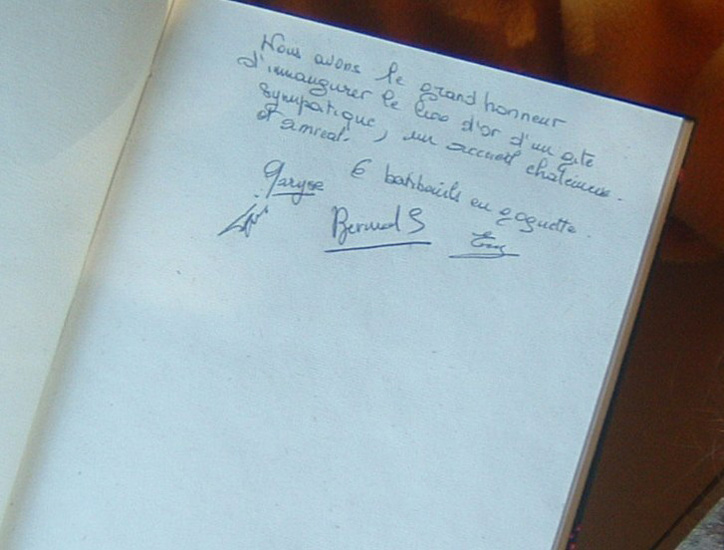 Nous avons le grand honneur
d'innaugurer le livre d'or d'un gîte
sympatique, un accueil chaleureux.
et amical.
6 barbouils en goguette.
Maryse
Bernard S